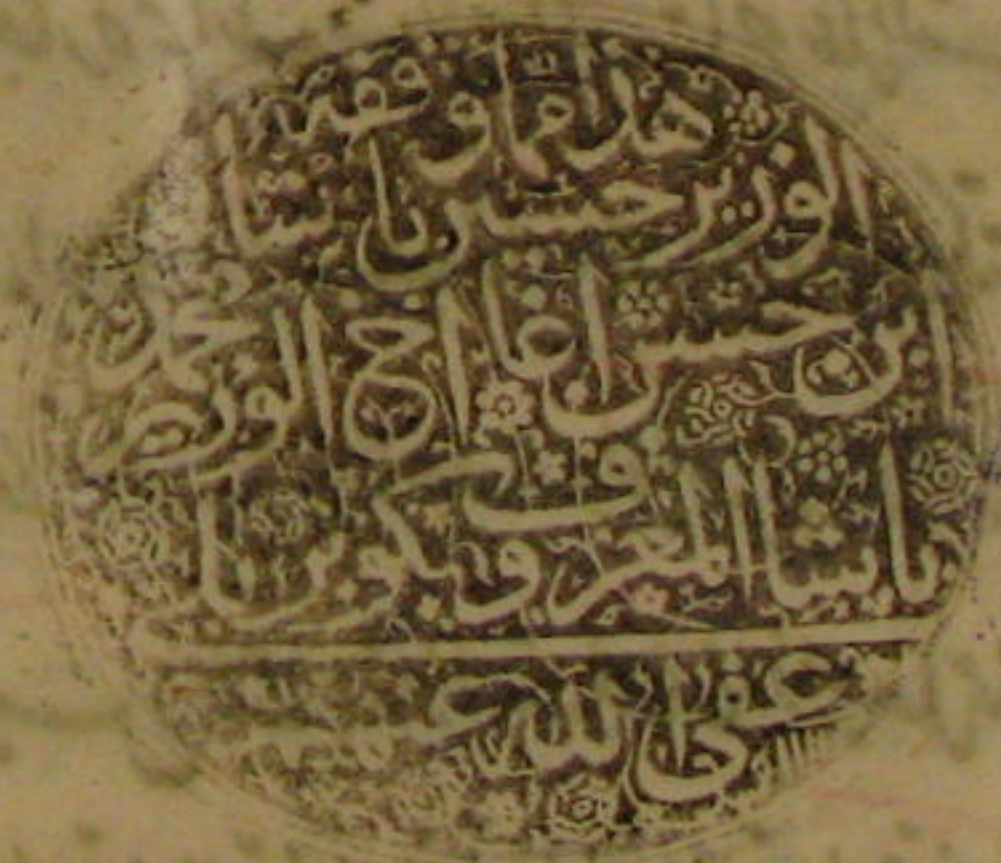 هذا مما وقفه
الوزير حسين باشا
ابن حسن اغا اخ الوزير محمد
باشا المعروف بكوپريلي
عفى الله عنهما